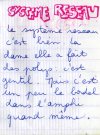 SYSTEME RESEAU
Le système réseau
c'est bien la
dame elle a fait
des polys c'est
gentil. Mais c'est
un peu le bordel
dans l'amphi
quand même.